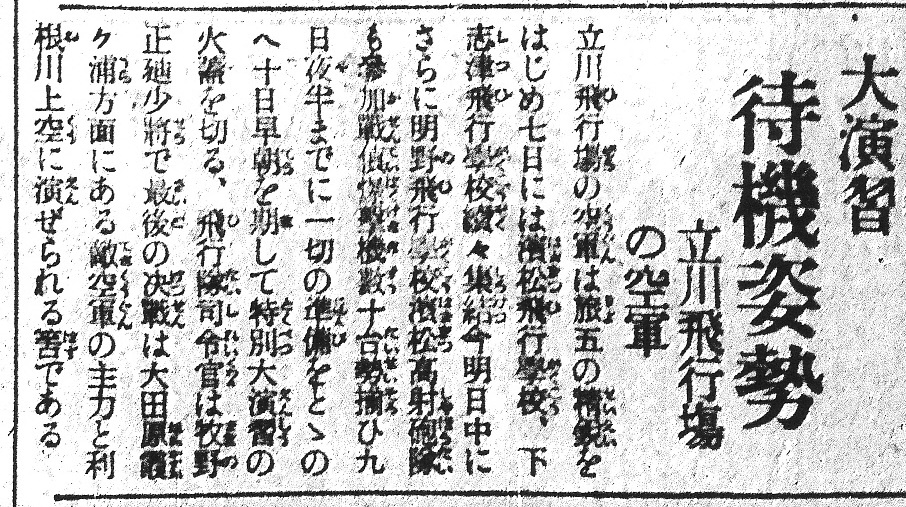 大演習
待機姿勢
立川飛行場
の空軍
立川飛行場の空軍は旅五の精鋭を
はじめ七日には濱松飛行學校、下
志津飛行學校續々集結今明日中に
さらに明野飛行學校濱松高射砲隊
も參加戰偵爆擊機數十台勢揃ひ九
日夜半までに一切の準備をとゝの
へ十日早朝を期して特別大演習の
火蓋を切る、飛行隊司令官は牧野
正廸少將で最後の決戰は大田原霞
ケ浦方面にある敵空軍の主力と利
根川上空に演ぜられる筈である